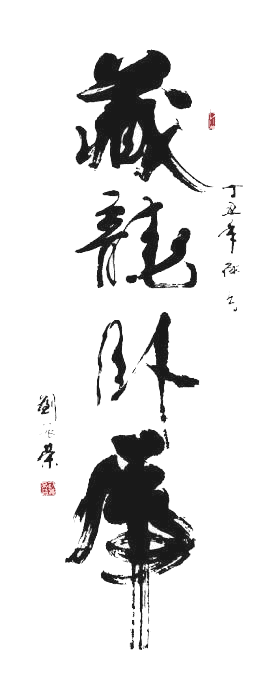 藏龍卧虎
丁丑年秋
劉
榮